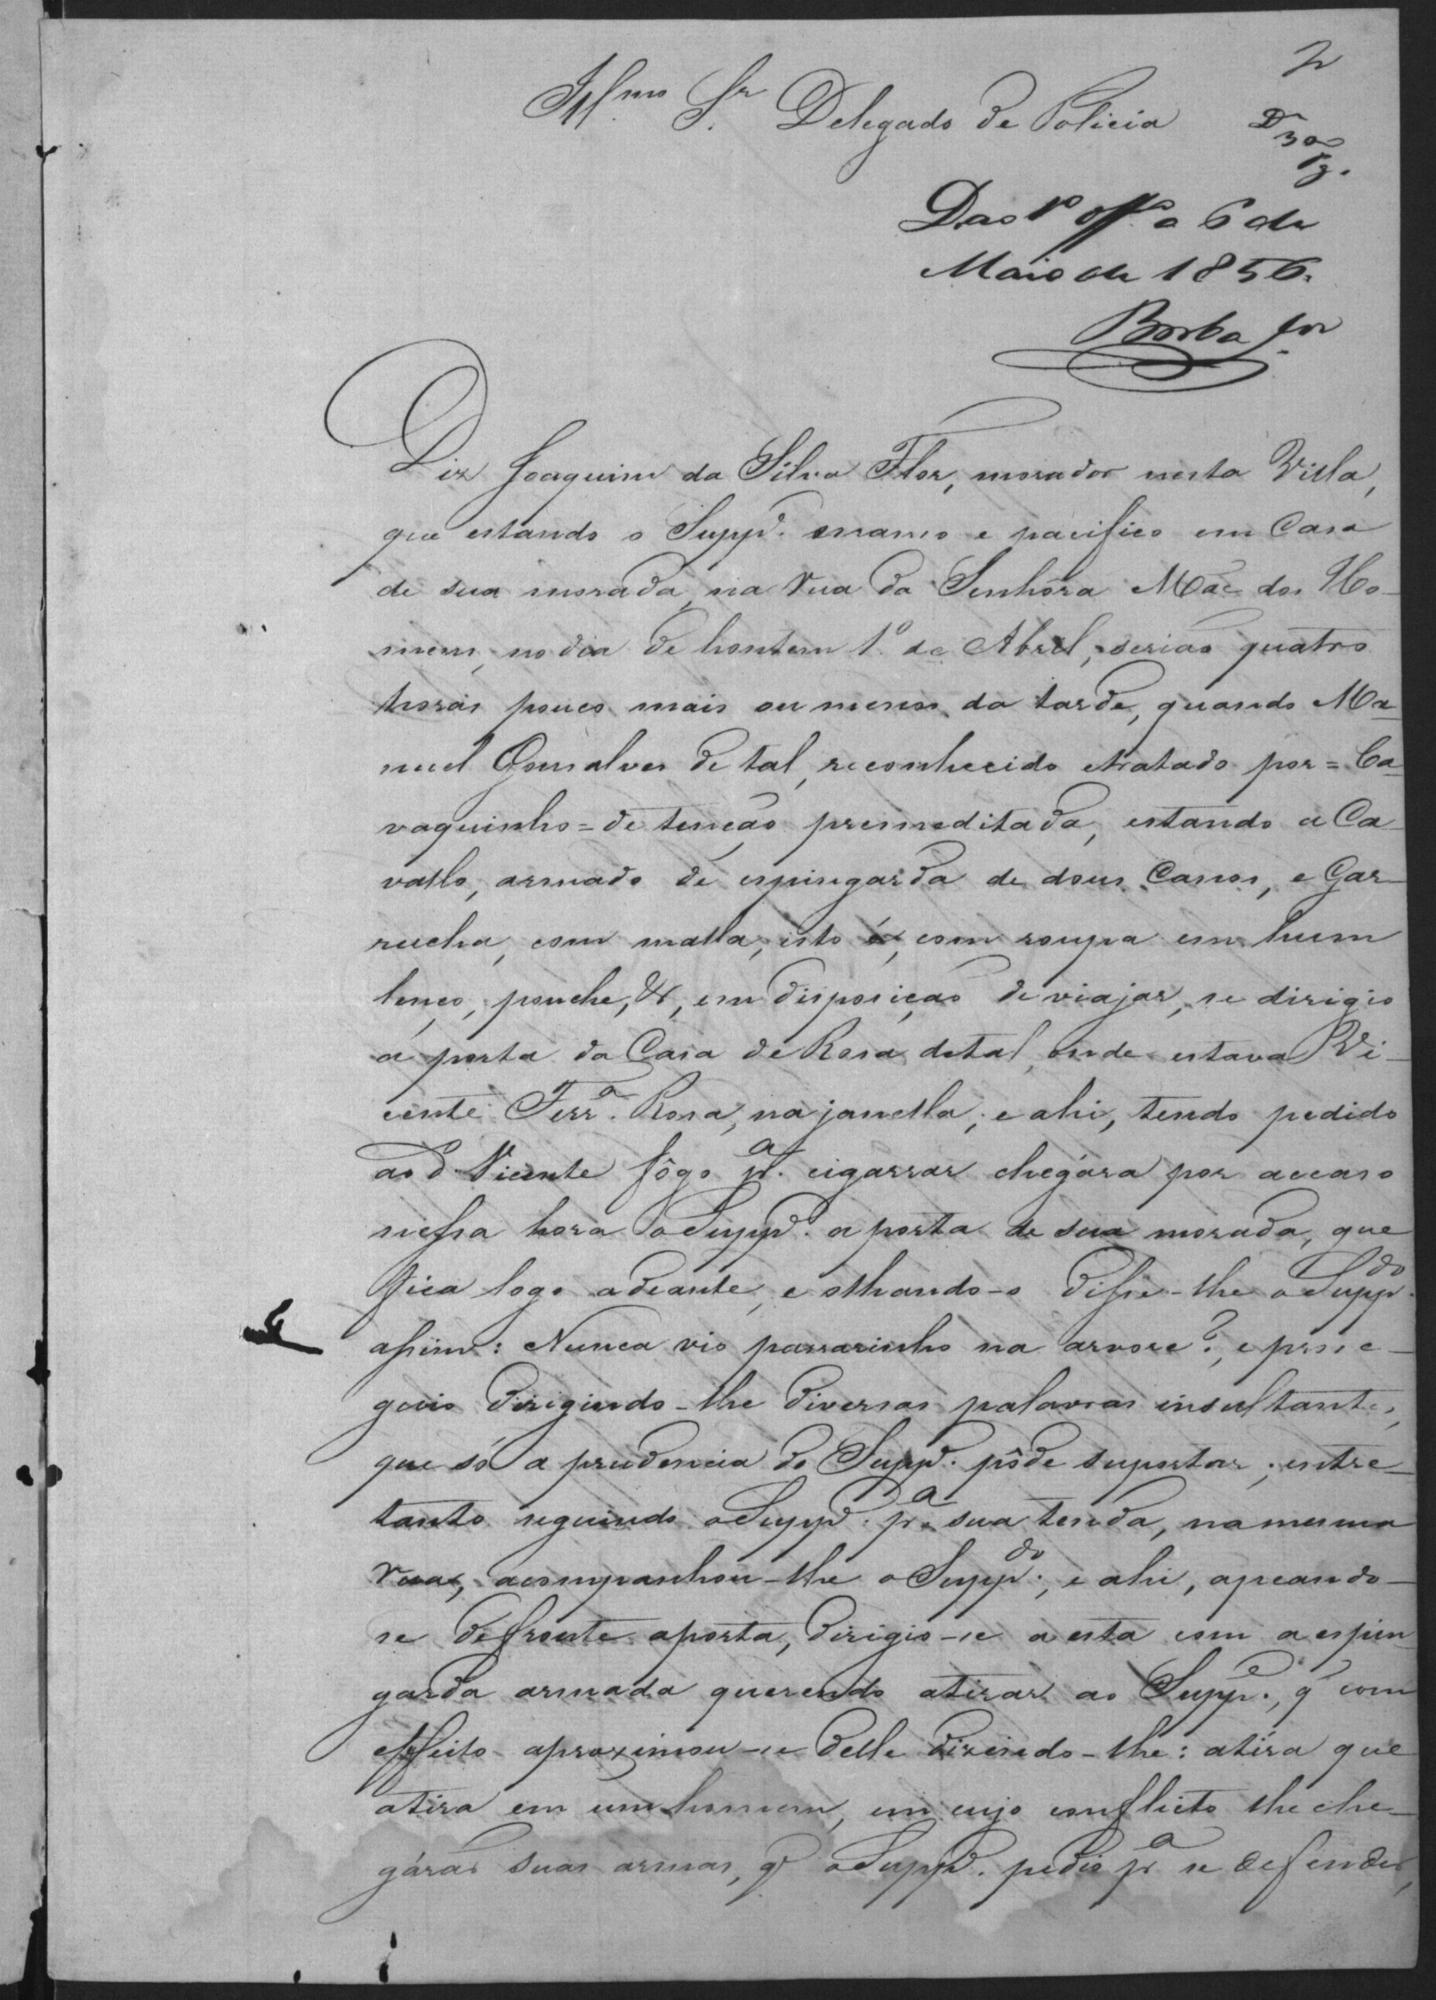 2
Ill.mo Sr. Delegado de Policia
D
300
Das 1º off.º a 6 de
Maio de 1856.
Borba Jor
Diz Joaquim da Silva Flor, morador nesta Villa,
que estando o Supp.e manso e pacifico em Casa
de sua morada, na rua da Senhôra Mãe dos Ho-
mens, no dia de hontem 1.º de Abril, serião quatro
horas pouco mais ou menos da tarde, quando Ma-
nuel Gonsalves de tal, reconhecido e tratado por = Ca-
vaquinho = de tenção premeditada, estando a Ca-
vallo, armado de espingarda de dous Canos, e Gar-
rucha, com malla, isto é, com roupa em hum
lenço, ponche, &, em disposição de viajar, se dirigio
a porta da Casa de Rosa de tal, onde estava Vi-
cente Ferr.a Rosa, na janella, e ahi, tendo pedido
ao d.º Vicente fôgo p.a cigarrar chegára por accaso
nessa hora o Supp.e a porta de sua morada, que
fica logo adeante, e olhando-o disse-lhe o Supp.do
assim: Nunca vio passarinho na arvore?, e prose-
guio dirigindo-lhe diversas palavras insultantes,
que só a prudencia do Supp.e pôde suportar; entre-
tanto seguindo o Supp.e p.a sua tenda, na mesma
rua, acompanhou-lhe o Supp.do, e ahi, apeando-
se defronte a porta, dirigio-se a esta com a espin-
garda armada querendo atirar ao Supp.e, q' com
effeito aproximou-se delle dizendo-lhe: atira que
atira em um homem, em cujo conflicto lhe che-
gárão suas armas, q' o Supp.e pedio p.a se defender,